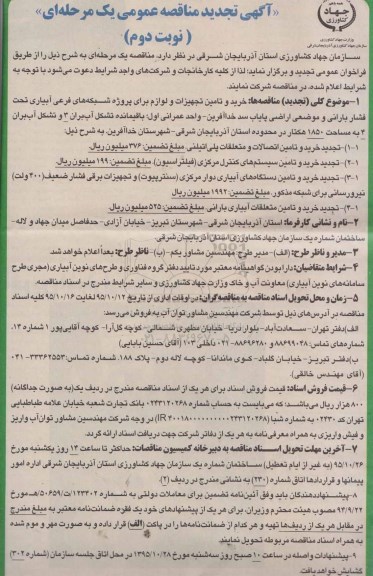 جهاد
کشاورزی
«آگهی تجدید مناقصه عمومی یک مرحله‌ای»
( نوبت دوم )
سازمان جهاد کشاورزی استان آذربایجان شرقی در نظر دارد، مناقصه یک مرحله‌ای به شرح ذیل را از طریق
فراخوان عمومی تجدید و برگزار نماید؛ لذا از کلیه کارخانجات و شرکت‌های واجد شرایط دعوت می‌شود با توجه به
شرایط اعلام شده، در مناقصه شرکت نمایند.
۱-موضوع کلی (تجدید) مناقصه‌ها: خرید و تامین تجهیزات و لوازم برای پروژه شبکه‌های فرعی آبیاری تحت
فشار بارانی و موضعی اراضی پایاب سد خداآفرین- واحد عمرانی اول: باقیمانده تشکل آب‌بران ۳ و تشکل آب‌بران
۴ به مساحت ۱۸۵۰ هکتار در محدوده استان آذربایجان شرقی-شهرستان خداآفرین به شرح ذیل:
۱-۱-تجدید خرید و تامین اتصالات و متعلقات پلی‌اتیلنی مبلغ تضمین: ۳۷۶ میلیون ریال
۲-۱-تجدید خرید و تامین سیستم‌های کنترل مرکزی (فیلتراسیون) مبلغ تضمین: ۱۹۹ میلیون ریال
۳-۱-تجدید خرید و تامین دستگاه‌های آبیاری دوار مرکزی (سنترپیوت) و تجهیزات برقی فشار ضعیف (۴۰۰ ولت)
نیرورسانی برای شبکه مذکور. مبلغ تضمین: ۱۹۹۲ میلیون ریال
۴-۱-تجدید خرید و تامین متعلقات آبیاری بارانی. مبلغ تضمین: ۵۲۵ میلیون ریال
۲-نام و نشانی کارفرما: استان آذربایجان شرقی-شهرستان تبریز-خیابان آزادی- حدفاصل میدان جهاد و لاله-
ساختمان شماره یک سازمان جهاد کشاورزی استان آذربایجان شرقی.
۳-مدیر و ناظر طرح: (الف)-مدیر طرح: مهندسین مشاور یکم -(ب)- ناظر طرح: بعداً اعلام خواهد شد
۴-شرایط متقاضیان: دارا بودن گواهینامه معتبر مورد تایید دفتر گروه فناوری و طرح‌های نوین آبیاری (مجری طرح
سامانه‌های نوین آبیاری) معاونت آب و خاک وزارت جهاد کشاورزی و سایر شرایط مندرج در اسناد مناقصه.
۵-زمان و محل تحویل اسناد مناقصه به مناقصه‌گران: در اوقات اداری از تاریخ ۹۵/۱۰/۱۲ لغایت ۹۵/۱۰/۱۶ کلیه اسناد
مناقصه در آدرس‌های ذیل توسط شرکت مهندسین مشاور توان آب به فروش می‌رسد:
الف)دفتر تهران- سعادت‌آباد- بلوار دریا- خیابان مطهری شمالی- کوچه گل‌آرا- کوچه آقایی‌پور ۱ شماره ۱۳،
شماره‌های تماس: ۸۸۶۹۹۰۴۸ و ۸۸۶۹۶۲۸۰-۰۲۱ داخلی ۱۰۳ (آقای حسین بابایی)
ب)دفتر تبریز- خیابان گلباد- کوی ماندانا- کوچه لاله دوم- پلاک ۱۸۸. شماره تماس: ۳۳۳۶۲۵۵۳-۰۴۱
(آقای مهندس خالقی).
۶-قیمت فروش اسناد: قیمت فروش اسناد برای هر یک از اسناد مناقصه مندرج در ردیف یک (به صورت جداگانه)
۸۰۰ هزار ریال می‌باشد؛ که می‌بایست به حساب شماره ۰۲۳۳۱۲۰۲۶۸ بانک تجارت شعبه خیابان علامه طباطبایی
تهران کد ۰۲۳۳۰ در وجه شرکت مهندسین مشاور توان‌آب واریز
و فیش واریزی به همراه معرفی‌نامه به هر یک از دفاتر شرکت جهت دریافت اسناد ارائه گردد.
۷-آخرین مهلت تحویل اسناد مناقصه به دبیرخانه کمیسیون مناقصات: حداکثر تا ساعت ۱۴ روز یکشنبه مورخ
۹۵/۱۰/۲۶ (به غیر از ایام تعطیل) ساختمان شماره یک سازمان جهاد کشاورزی استان آذربایجان شرقی اداره امور
پیمان‌ها و قراردادها اتاق شماره (۲۳۰) به نشانی مندرج در ردیف (۲)
۸-پیشنهاددهندگان باید وفق آئین‌نامه تضمین برای معاملات دولتی به شماره ۱۲۳۴۰۲/ت۵۰۶۵۹هـ مورخ
۹۴/۹/۲۲ مصوب هیئت محترم وزیران، برای هر یک از پیشنهادهای خود یک فقره ضمانت‌نامه معتبر به مبلغ مندرج
در مقابل هر یک از ردیف‌ها تهیه و هر کدام از ضمانت‌نامه‌ها را در پاکت (الف) قرار داده و به صورت مهر و موم شده
به همراه اسناد مناقصه مربوطه تحویل نمایند.
۹-پیشنهادات واصله در ساعت ۱۰ صبح روز سه‌شنبه مورخ ۱۳۹۵/۱۰/۲۸ در محل اتاق جلسه سازمان (شماره ۳۰۲)
گشایش خواهد یافت.